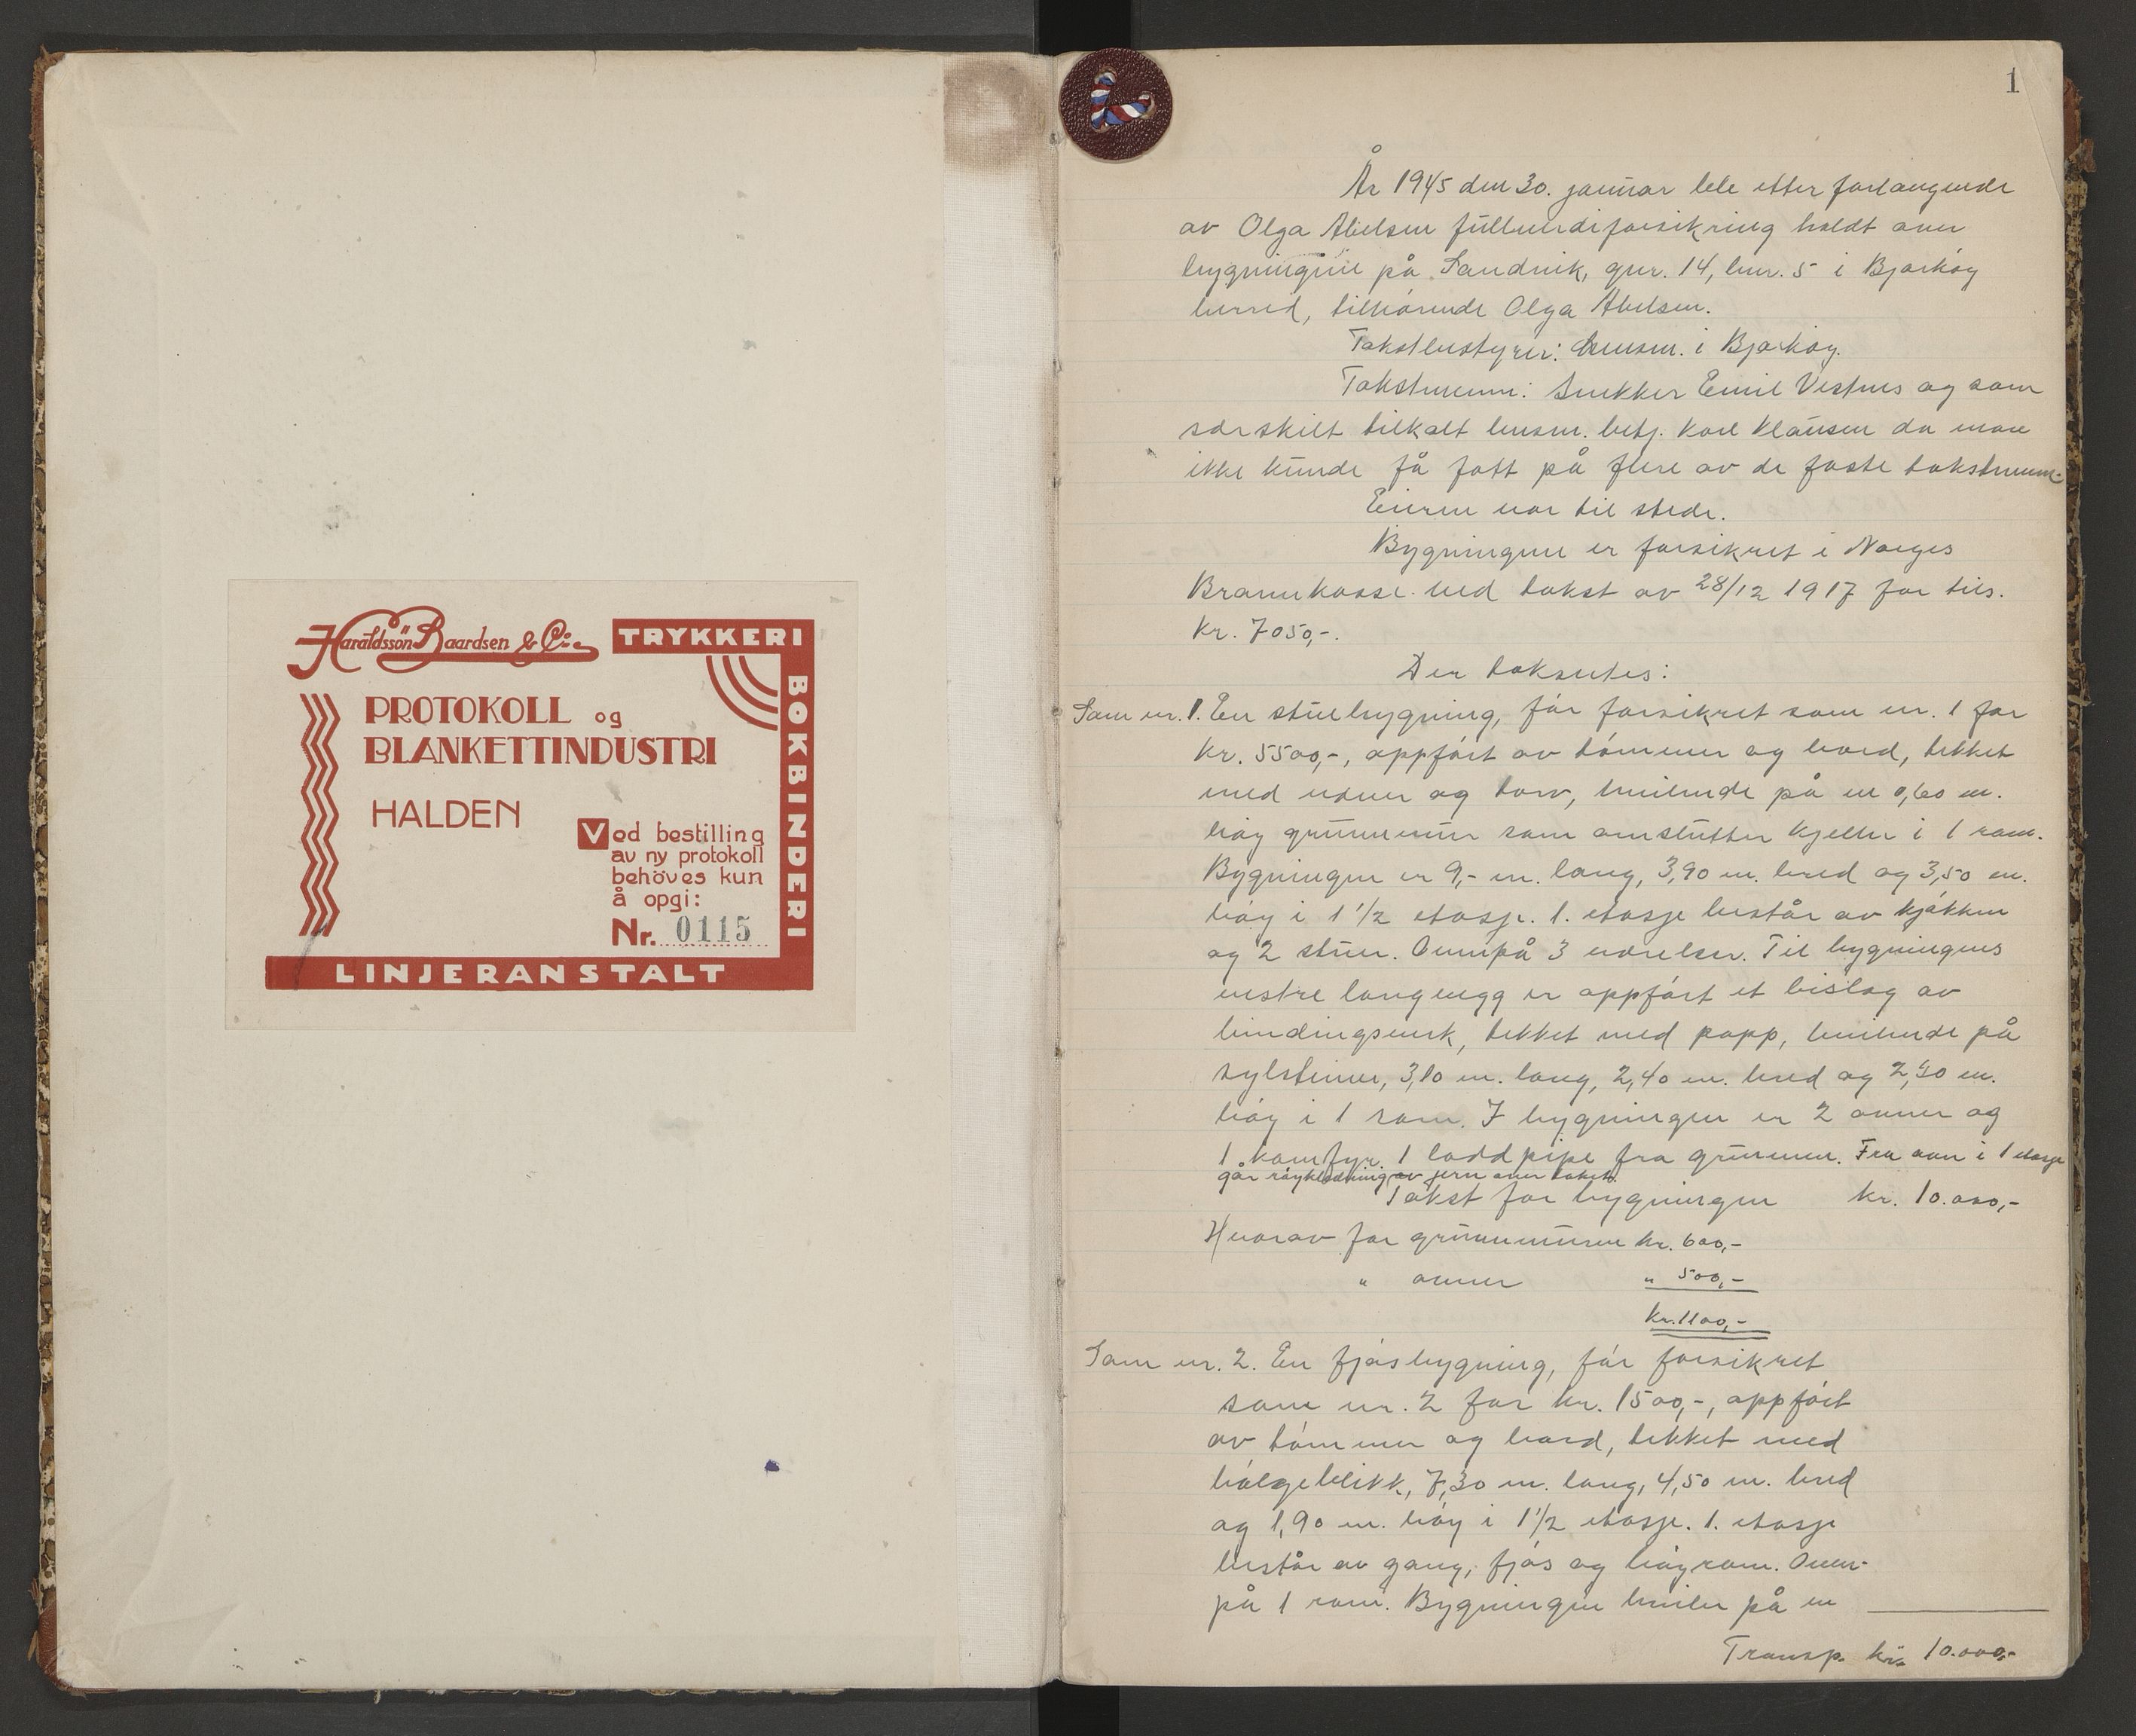 Haraldssön Baardsen & Co.
TRYKKERI
BOKBINDERI
PROTOKOLL og
BLANKETTINDUSTRI
HALDEN
Ved bestilling
av ny protokoll
behöves kun
å opgi:
Nr. 0115
LINJERANSTALT
1
År 1945 den 30. januar ble etter forlangende
av Olga Abelsen fullverdiforsikring holdt over
bygningene på Sandvik, gnr. 14, bnr. 5 i Bjarkøy
herred, tilhørende Olga Abelsen.
Takstbestyrer: Lensm. i Bjarkøy.
Takstmenn: Snekker Emil Vestnes og som
særskilt tilkalt lensm. betj. Karl Klausen da man
ikke kunde få fatt på flere av de faste takstmenn.
Eieren var til stede.
Bygningene er forsikret i Norges
Brannkasse ved takst av 28/12 1917 for tils.
kr. 7050,-.
Der taksertes:
Som nr. 1. En stuebygning, før forsikret som nr. 1 for
kr. 5500,-, oppført av tømmer og bord, tekket
med never og torv, hvilende på en 0,60 m.
høy grunnmur som omslutter kjeller i 1 rom.
Bygningen er 9,- m. lang, 3,90 m. bred og 3,50 m.
høy i 1 1/2 etasje. 1. etasje består av kjøkken
og 2 stuer. Ovenpå 3 værelser. Til bygningens
vestre langvegg er oppført et bislag av
bindingsverk, tekket med papp, hvilende på
sylsteiner, 3,10 m. lang, 2,40 m. bred og 2,30 m.
høy i 1 rom. I bygningen er 2 ovner og
1 komfyr. 1 loddpipe fra grunnen. Fra ovn i 1 etasje
går røykledning av jern over taket.
Takst for bygningen kr. 10.000,-
Hvorav for grunnmuren kr. 600,-
" ovner " 500,-
kr. 1100,-
Som nr. 2. En fjøsbygning, før forsikret
som nr. 2 for kr. 1500,-, oppført
av tømmer og bord, tekket med
bølgeblikk, 7,30 m. lang, 4,50 m. bred
og 1,90 m. høy i 1 1/2 etasje. 1. etasje
består av gang, fjøs og høyrom. Oven-
på 1 rom. Bygningen hviler på en
Transp. kr. 10.000,-